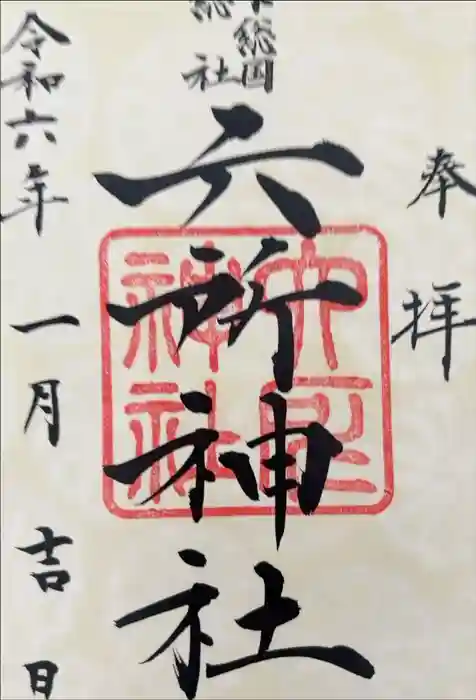 奉拝
下総国
総社
六所神社
六所神社
令和六年一月吉日